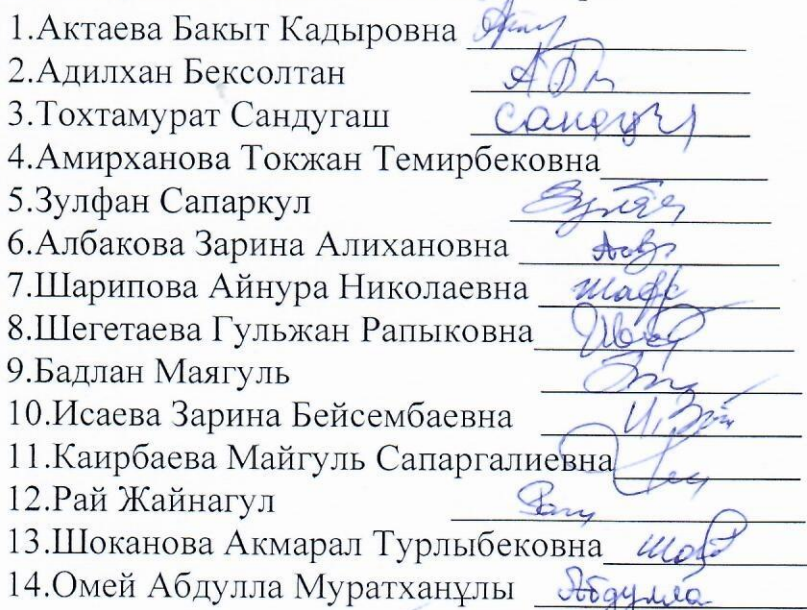 1.Актаева Бакыт Кадыровна
2.Адилхан Бексолтан
3.Тохтамурат Сандугаш
4.Амирханова Токжан Темирбековна
5.Зулфан Сапаркул
6.Албакова Зарина Алихановна
7.Шарипова Айнура Николаевна
8.Шегетаева Гульжан Рапыковна
9.Бадлан Маягуль
10.Исаева Зарина Бейсембаевна
11.Каирбаева Майгуль Сапаргалиевна
12.Рай Жайнагул
13.Шоканова Акмарал Турлыбековна
14.Омей Абдулла Муратханұлы Абдулла